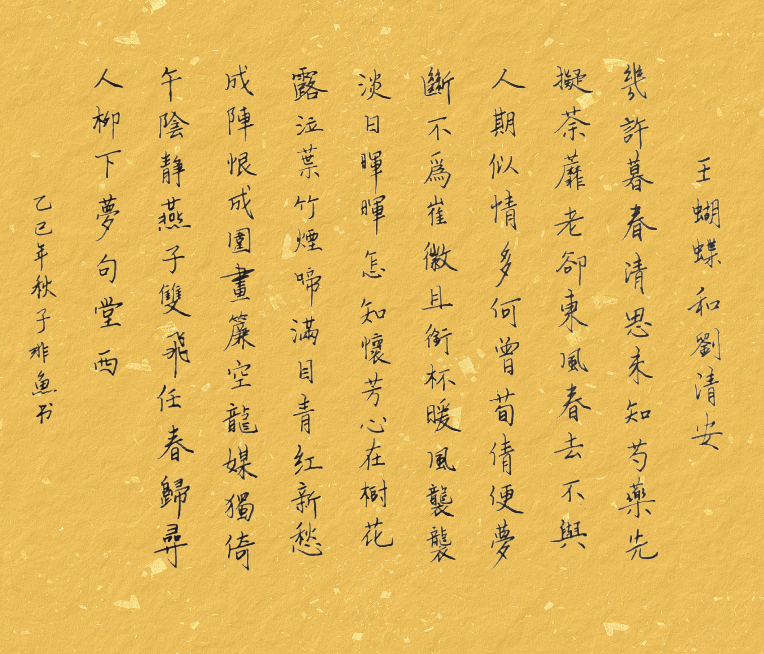 玉蝴蝶和劉清安
幾許暮春清思未知芍藥先
擬荼蘼老卻東風春去不與
人期似情多何曾荀倩便夢
斷不爲崔徽且銜杯暖風襲襲
淡日暉暉怎知懷芳心在樹花
露泣葉竹煙啼滿目青紅新愁
成陣恨成圍畫簾空龍媒獨倚
午陰靜燕子雙飛任春歸尋
人柳下夢句堂西
乙巳年秋子非魚书